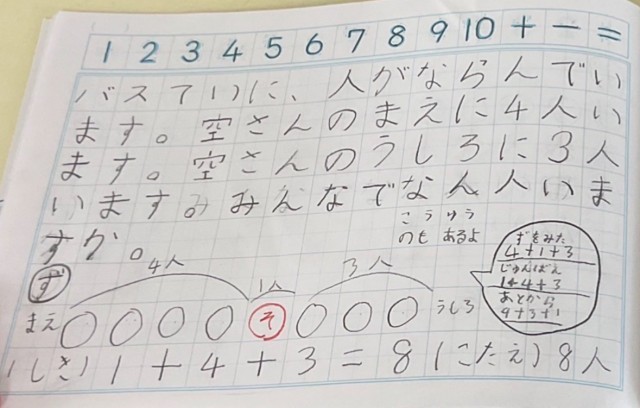 1 2 3 4 5 6 7 8 9 10 + − =
バスていに、人がならんでい
ます。空さんのまえに4人い
ます。空さんのうしろに3人
います。みんなでなん人いま
すか。
こうゆう
のも あるよ
ず
4人 1人 3人
まえ そ うしろ
ずをみた
4+1+3
じゅんばん
1+4+3
あとから
4+3+1
(しき) 1+4+3=8 (こたえ) 8人